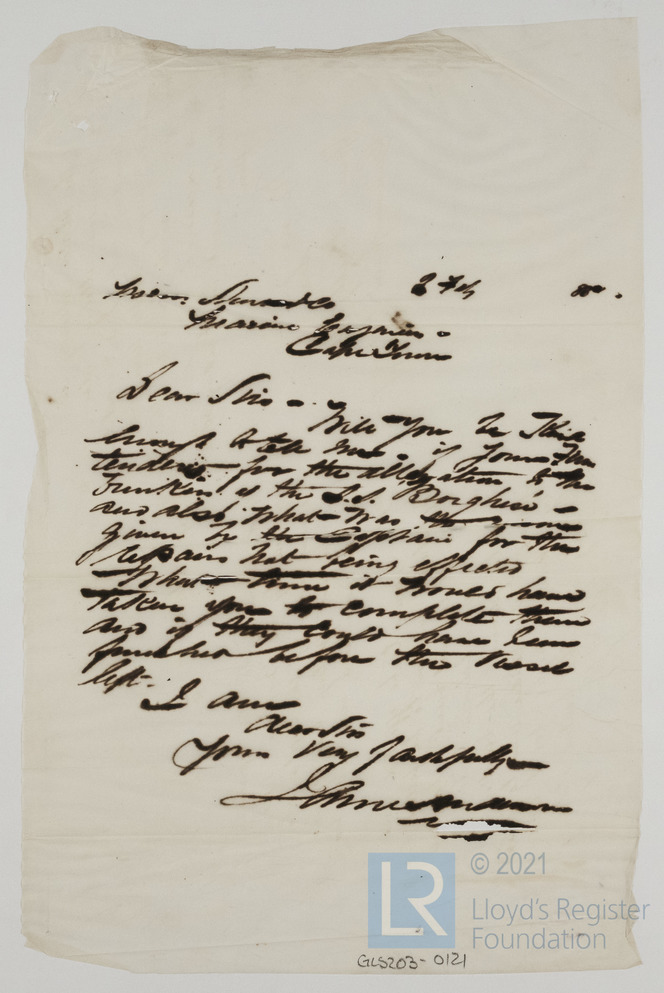 Messrs.
2 Feb 80.
Marine Engineers
Cape Town
Dear Sir - Will you be kind
enough to tell me if you
tendered for the alteration to the
Bunkers of the S.S. Borghese
and also what was the reason
given by the Captain for the
repairs not being effected
What time it would have
taken you to complete them
and if they could have been
finished before the vessel
left.
I am
dear Sir
Yours very faithfully
© 2021
LR
Lloyd's Register
Foundation
GLS203-0121